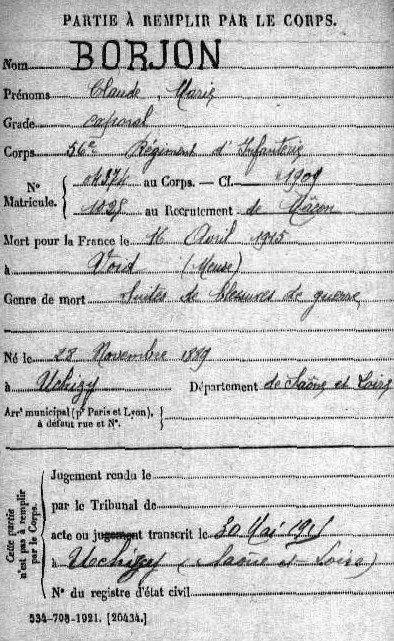 PARTIE À REMPLIR PAR LE CORPS.
Nom BORJON
Prénoms Claude Marie
Grade caporal
Corps 56e Régiment d'Infanterie
N° Matricule. { au Corps. — Cl. 1909
au Recrutement de Mâcon
Mort pour la France le 16 Avril 1915
à Void (Meuse)
Genre de mort Suites de blessures de guerre
Né le 28 Novembre 1889
à Uchizy Département de Saône et Loire
Arrt municipal (pr Paris et Lyon), à défaut rue et N°. {
Cette partie n'est pas à remplir par le Corps.
Jugement rendu le
par le Tribunal de
acte ou jugement transcrit le 30 Mai 1915
à Uchizy (Saône et Loire)
N° du registre d'état civil
534-708-1921. [20434.]